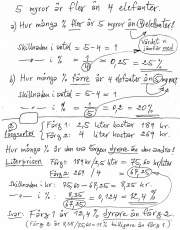 5 myror är fler än 4 elefanter.
a) Hur många % fler är 5 myror än 4 elefanter?
Skillnaden i antal = 5-4 = 1
1/4 = 0,25 = 25%
b) Hur många % färre är 4 elefanter än 5 myror
Skillnaden i antal = 5-4 = 1
1/5 = 0,2 = 20%
Färg 1: 2,5 liter kostar 189 kr.
Färg 2: 4 liter kostar 269 kr.
Hur många % är den ena färgen dyrare än den andra?
Literprisen: Färg 1: 189 kr / 2,5 liter = 75,60 kr/liter
Färg 2: 269 / 4 = 67,25
Skillnaden i kr: 75,60 - 67,25 = 8,35 kr.
8,35 / 67,25 = 0,124 = 12,4 %
Svar: Färg 1 är 12,4 % dyrare än färg 2.
(Färg 2 är 8,35/75,60 = 11% billigare än färg 1)